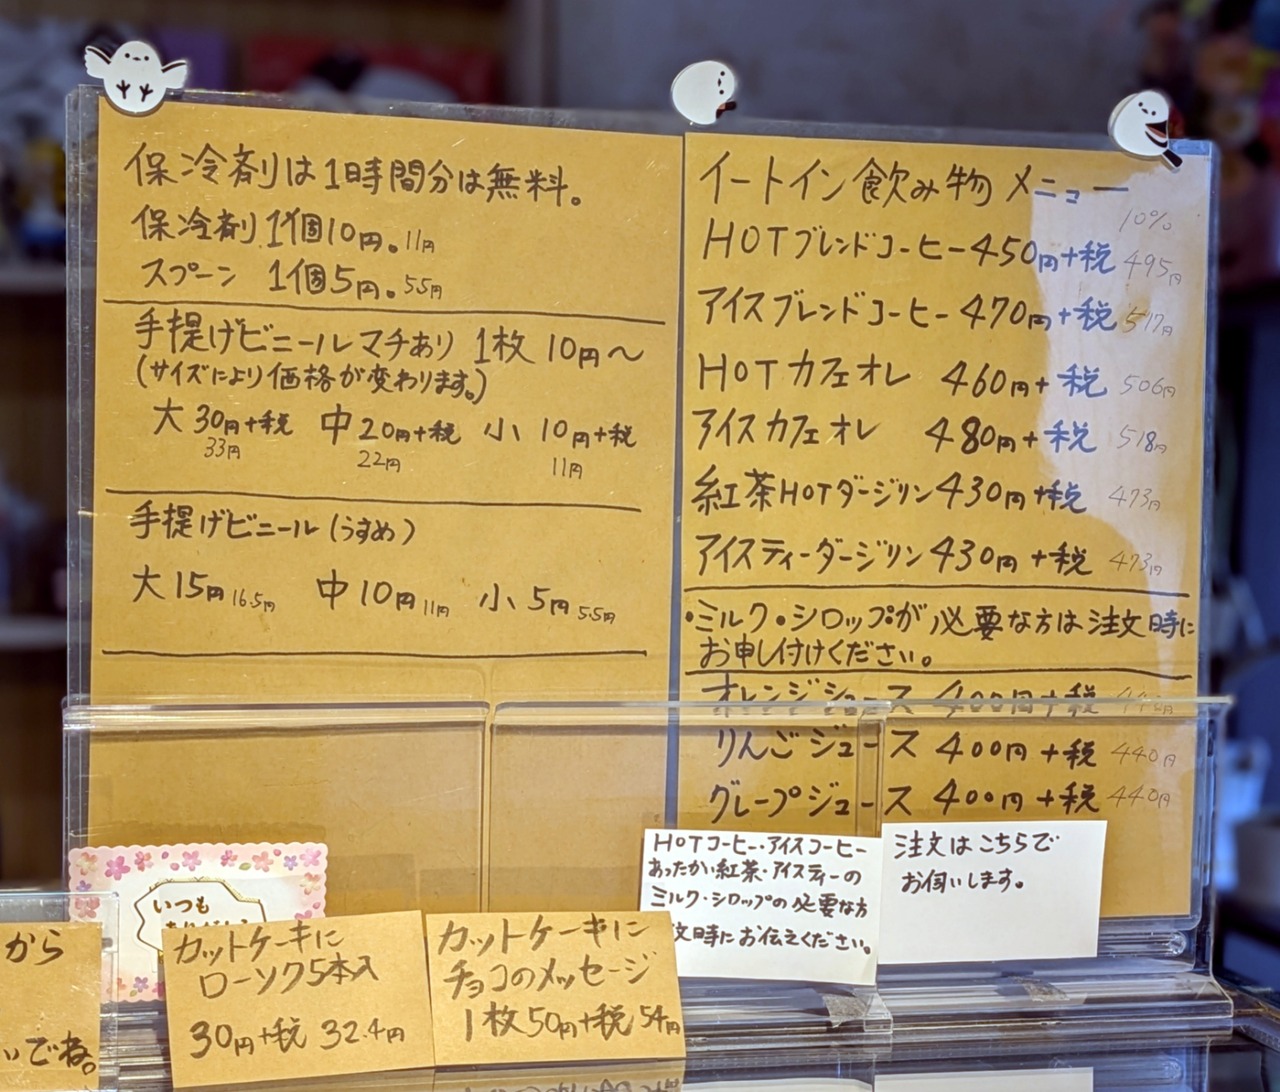 保冷剤は1時間分は無料。
保冷剤 1個10円。11円
スプーン 1個5円。5.5円
手提げビニールマチあり 1枚 10円〜
(サイズにより価格が変わります。)
大 30円+税 中 20円+税 小 10円+税
33円 22円 11円
手提げビニール (うすめ)
大 15円 16.5円 中 10円 11円 小 5円 5.5円
イートイン飲み物メニュー
10%
HOTブレンドコーヒー 450円+税 495円
アイスブレンドコーヒー 470円+税 517円
HOTカフェオレ 460円+税 506円
アイスカフェオレ 480円+税 518円
紅茶HOTダージリン 430円+税 473円
アイスティーダージリン 430円+税 473円
・ミルク・シロップが必要な方は注文時に
お申し付けください。
オレンジジュース 400円+税 440円
りんごジュース 400円+税 440円
グレープジュース 400円+税 440円
HOTコーヒー・アイスコーヒー
あったかい紅茶・アイスティーの
ミルク・シロップの必要な方
文時にお伝えください。
注文はこちらで
お伺いします。
いつも
カットケーキに
ローソク5本入
30円+税 32.4円
カットケーキに
チョコのメッセージ
1枚50円+税 54円
から
いでね。